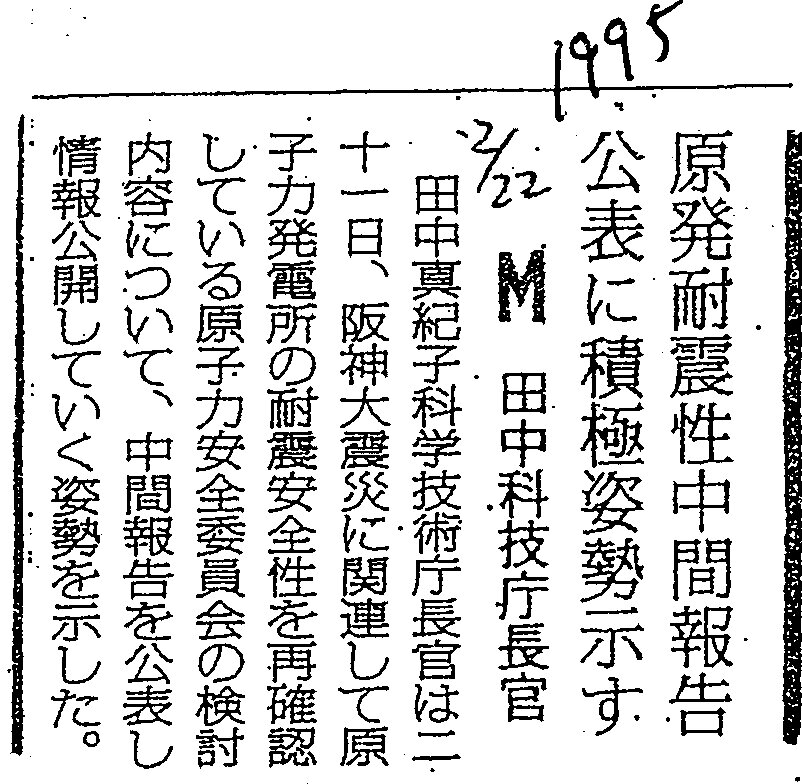 1995
2/22
M
原発耐震性中間報告
公表に積極姿勢示す
田中科技庁長官
田中真紀子科学技術庁長官は二
十一日、阪神大震災に関連して原
子力発電所の耐震安全性を再確認
している原子力安全委員会の検討
内容について、中間報告を公表し
情報公開していく姿勢を示した。